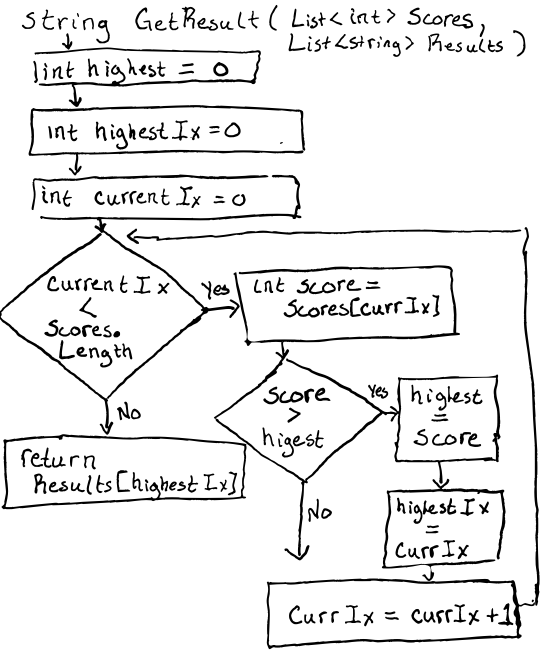 string GetResult( List<int> Scores,
List<string> Results )
int highest = 0
int highestIx = 0
int currentIx = 0
currentIx
<
Scores.
Length
Yes
int score =
Scores[currIx]
No
return
Results[highestIx]
Score
>
higest
Yes
highest
=
Score
No
highestIx
=
CurrIx
CurrIx = currIx + 1